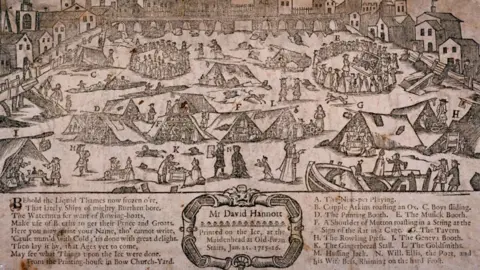 Behold the Liquid Thames now frozen o'er,
That lately Ships of mighty Burthen bore.
The Watermen for want of Rowing-boats,
Make use of Booths to get their Pence and Groats.
Here you may print your Name, tho' cannot write,
'Cause numb'd with Cold, 'tis done with great delight.
And lay it by, that Ages yet to come,
May see what Things upon the Ice were done.
From the Printing-house in Bow Church-Yard.
Mr David Hannott
Printed on the Ice, at the
Maidenhead at Old-Swan
Stairs, Jan. 21. 1715-16.
A. The Nine-pin Playing.
B. Cripple Atkins roasting an Ox. C. Boys sliding.
D. The Printing Booth. E. The Musick Booth.
F. A Shoulder of Mutton roasting in a String at the
Sign of the Rat in a Cage. G. The Tavern
H. The Rowling Press. I. The Geneva Booth.
K. The Gingerbread Stall. L. The Goldsmiths.
M. Holding Jack. N. Will. Ellis, the Poet, and
his Wife Bess, Rhiming on the hard Frost.
C
F
L
S
E
I
H
K
N